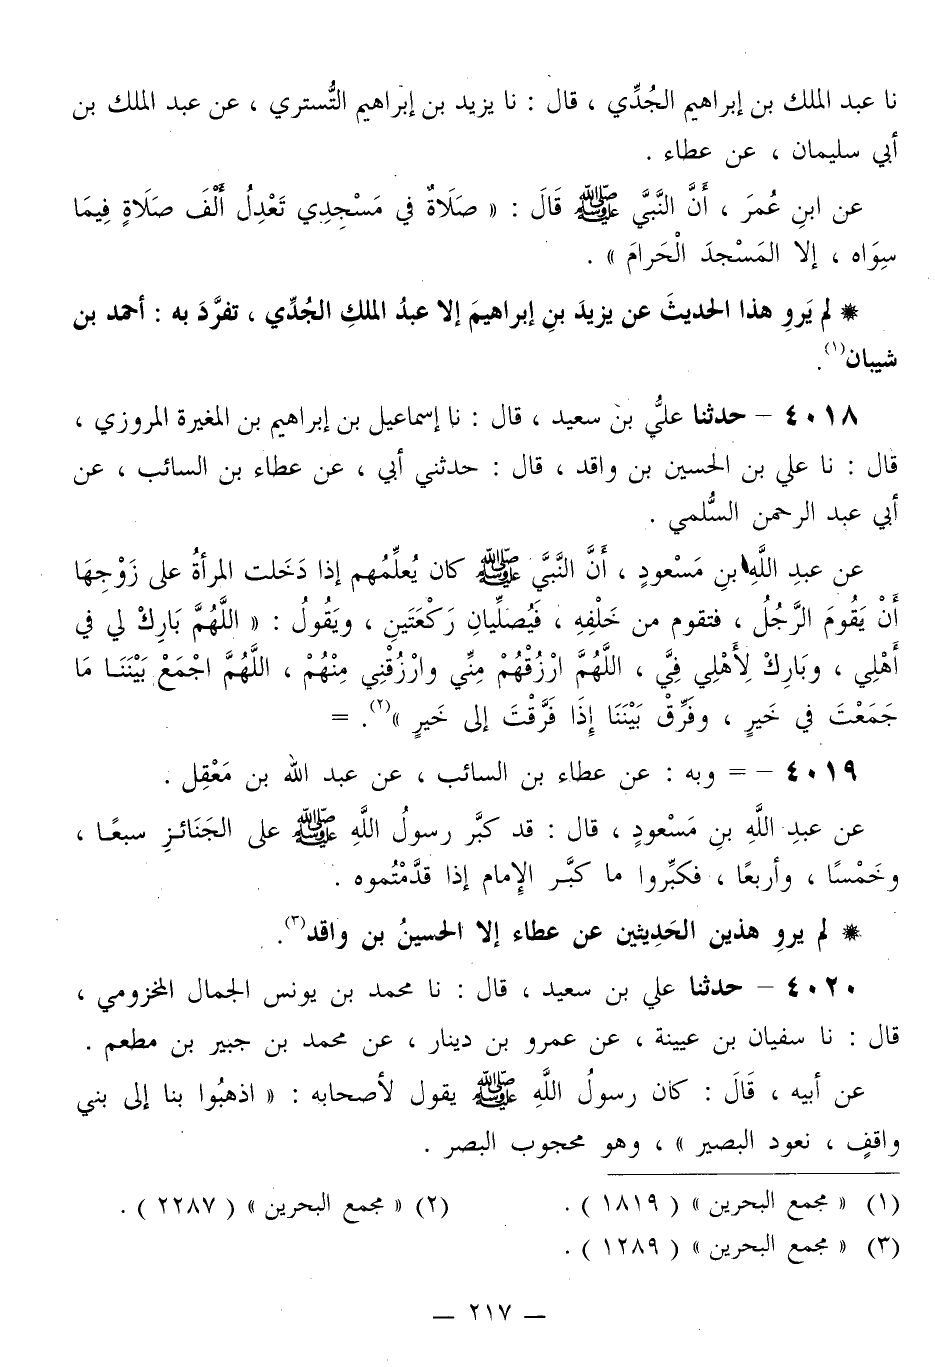 نا عبد الملك بن إبراهيم الجُدِّي ، قال : نا يزيد بن إبراهيم التُّستري ، عن عبد الملك بن
أبي سليمان ، عن عطاء .
عن ابنِ عُمرَ ، أَنَّ النَّبيَّ ﷺ قَالَ : « صَلَاةٌ في مَسْجِدِي تَعْدِلُ أَلْفَ صَلَاةٍ فِيمَا
سِوَاه ، إلا المَسْجدَ الْحَرامَ » .
* لم يَروِ هذا الحديثَ عن يزيدَ بنِ إبراهيمَ إلا عبدُ الملكِ الجُدِّي ، تفرَّدَ به : أحمد بن
شيبان(١).
٤٠١٨ – حدثنا عليُّ بن سعيد ، قال : نا إسماعيل بن إبراهيم بن المغيرة المروزي ،
قال : نا علي بن الحسين بن واقد ، قال : حدثني أبي ، عن عطاء بن السائب ، عن
أبي عبد الرحمن السُّلمي .
عن عبدِ اللَّهِ بنِ مَسْعودٍ ، أَنَّ النَّبيَّ ﷺ كان يُعلِّمُهم إذا دَخَلت المرأةُ على زَوْجِهَا
أَنْ يَقُومَ الرَّجُلُ ، فتقوم من خَلْفِهِ ، فَيُصلِّيانِ رَكْعَتَينِ ، ويَقُولُ : « اللَّهُمَّ بَارِكْ لي في
أَهْلِي ، وبَارِكْ لِأَهْلِي فِيَّ ، اللَّهُمَّ ارْزُقْهُمْ مِنِّي وارْزُقْنِي مِنْهُمْ ، اللَّهُمَّ اجْمَعْ بَيْنَنَا مَا
جَمَعْتَ في خَيرٍ ، وفَرِّقْ بَيْنَنَا إِذَا فَرَّقْتَ إلى خَيرٍ »(٢). =
٤٠١٩ – = وبه : عن عطاء بن السائب ، عن عبد الله بن مَعْقِل .
عن عبدِ اللَّهِ بنِ مَسْعودٍ ، قال : قد كبَّر رسولُ اللَّهِ ﷺ على الجَنَائزِ سبعًا ،
وخَمْسًا ، وأربعًا ، فكبِّروا ما كبَّر الإمام إذا قدَّمْتُموه .
* لم يروِ هذين الحَدِيثين عن عطاء إلا الحسينُ بن واقد(٣).
٤٠٢٠ – حدثنا علي بن سعيد ، قال : نا محمد بن يونس الجمال المخزومي ،
قال : نا سفيان بن عيينة ، عن عمرو بن دينار ، عن محمد بن جبير بن مطعم .
عن أبيه ، قَالَ : كان رسولُ اللَّهِ ﷺ يقول لأصحابه : « اذهبُوا بنا إلى بني
واقفٍ ، نعود البصير » ، وهو محجوب البصر .
(١) « مجمع البحرين » ( ١٨١٩ ) . (٢) « مجمع البحرين » ( ٢٢٨٧ ) .
(٣) « مجمع البحرين » ( ١٢٨٩ ) .
— ٢١٧ —